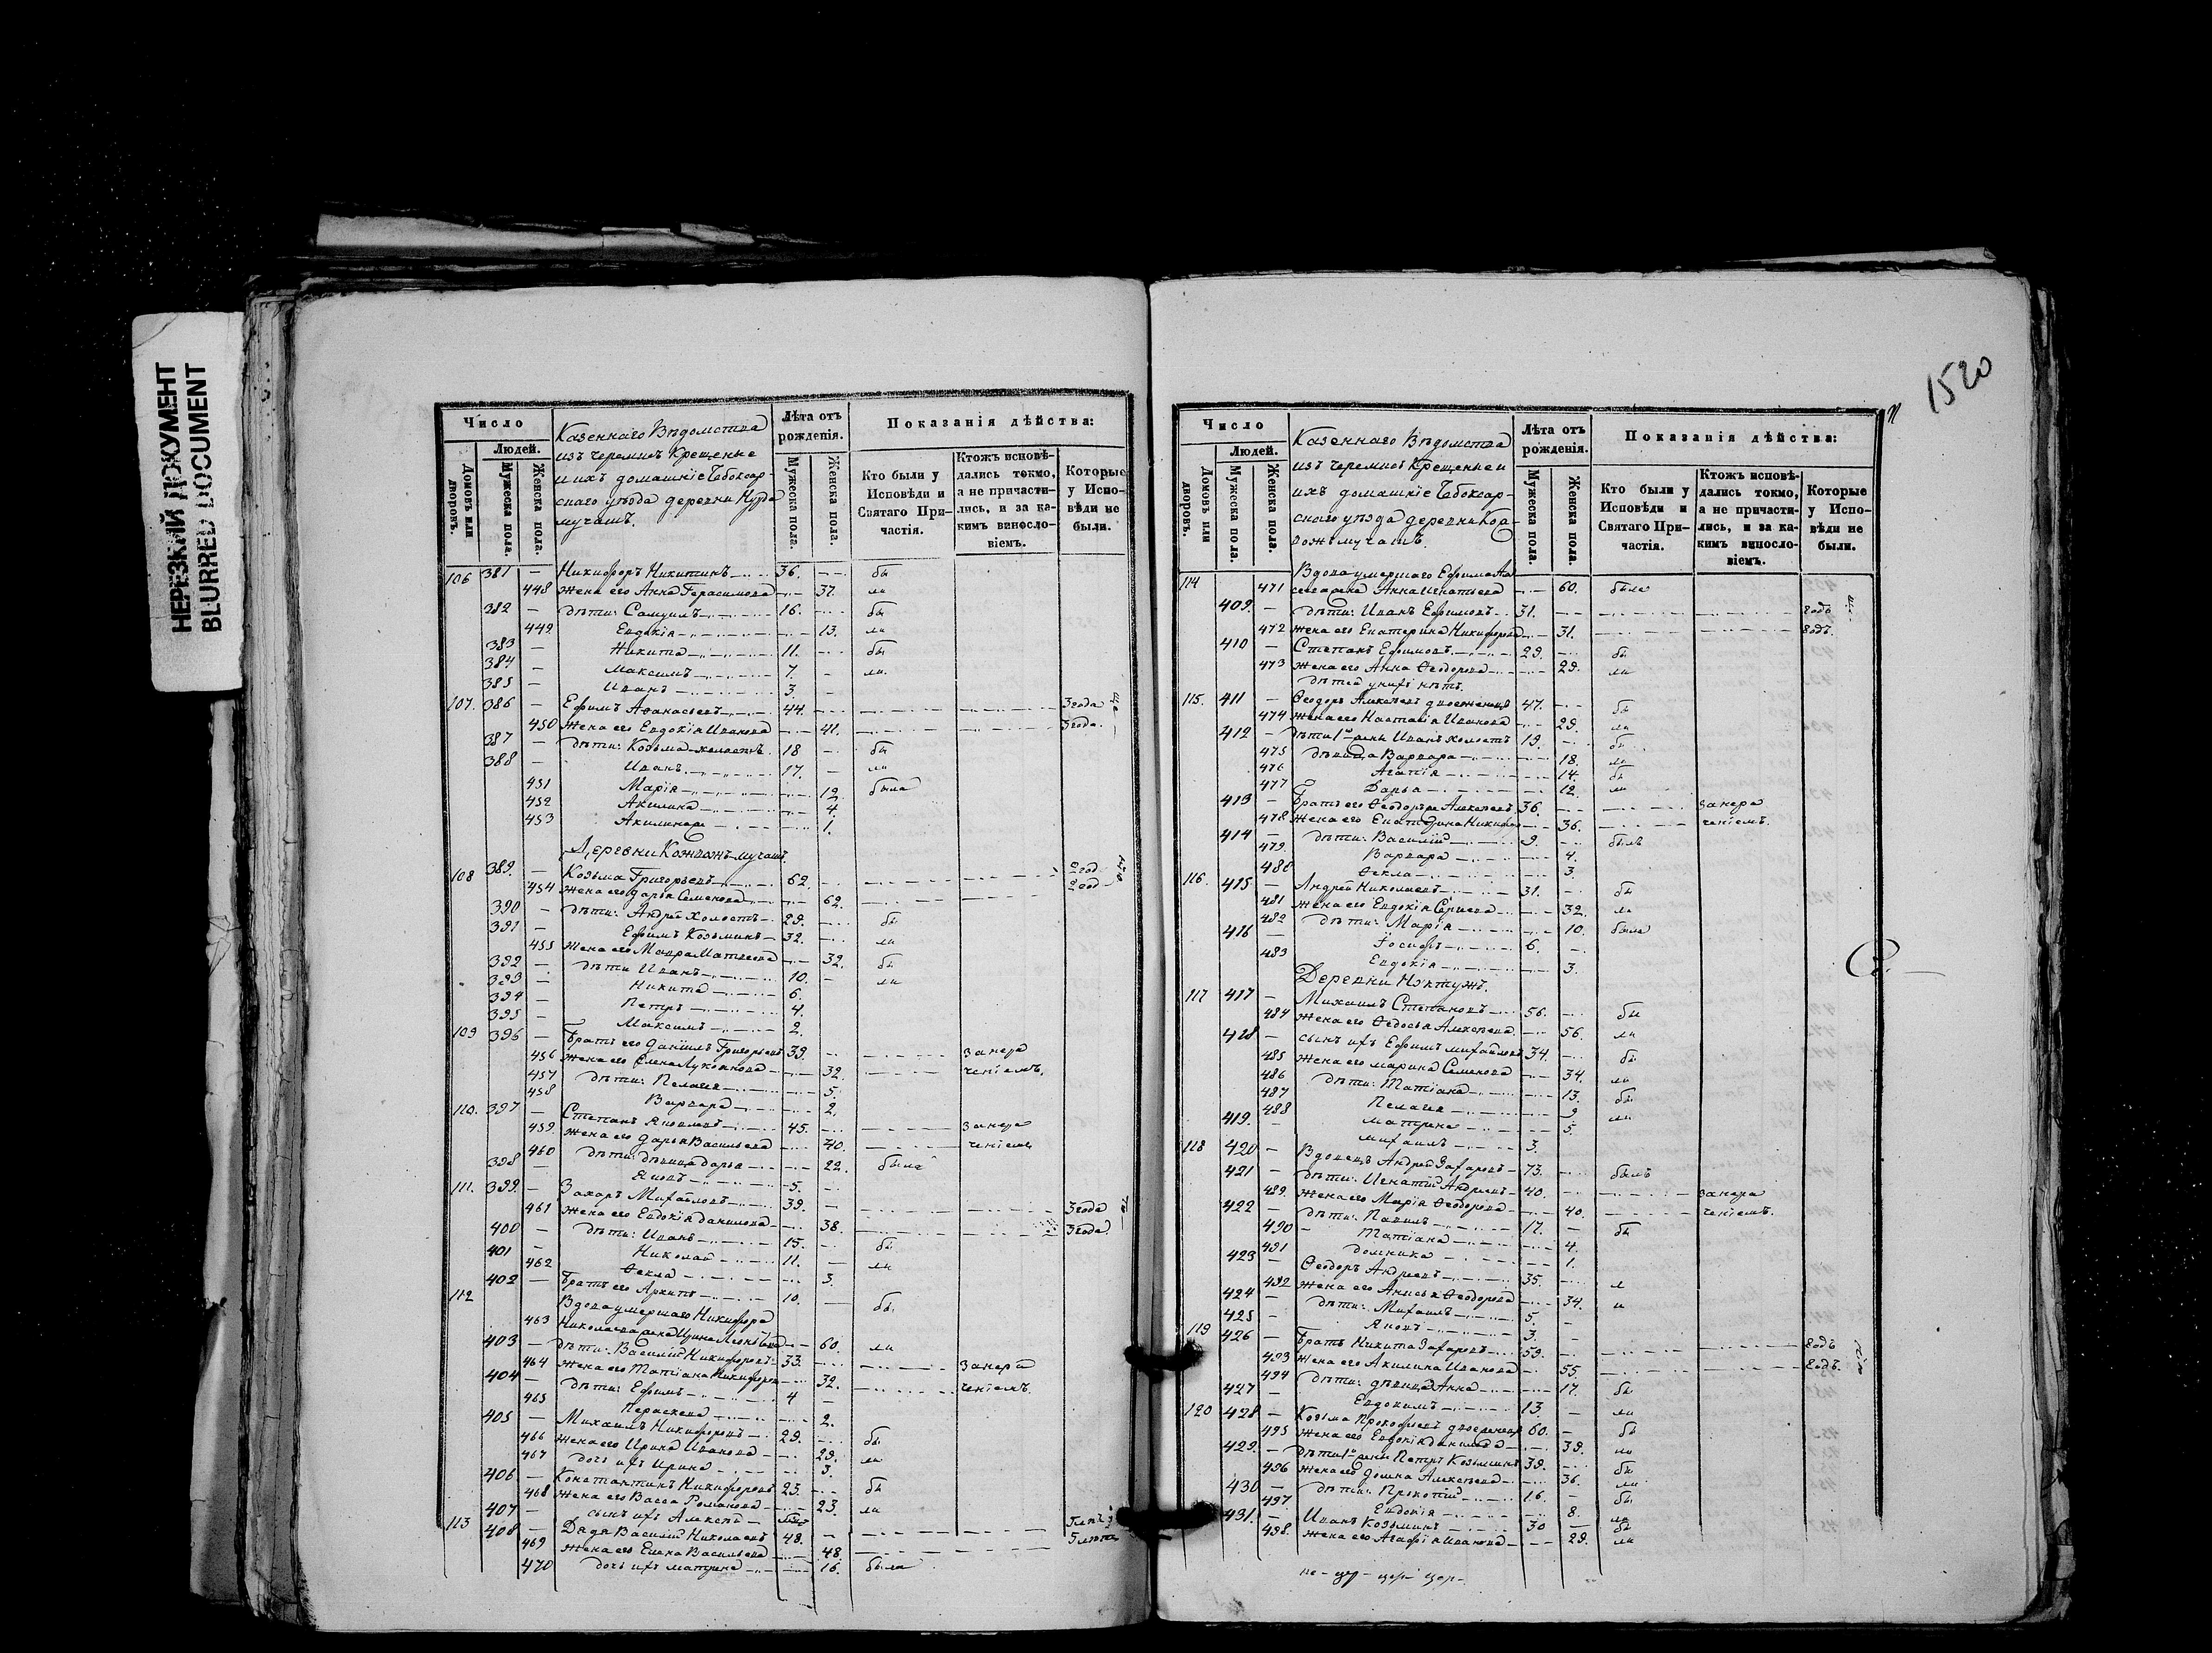 НЕРЕЗКИЙ ДОКУМЕНТ
BLURRED DOCUMENT
1520
Число
Людей.
Домовъ или дворовъ.
Мужеска пола.
Женска пола.
Казеннаго Вѣдомства
изъ черемисъ Крещеные
и ихъ домашніе Чебоксар-
скаго уѣзда деревни
мучашъ.
Лѣта отъ рожденія.
Мужеска пола.
Женска пола.
Показанія дѣйства:
Кто были у Исповѣди и Святаго При-частія.
Ктожъ исповѣ-дались токмо, а не причасти-лись, и за ка-кимъ винносло-віемъ.
Которые у Испо-вѣди не были.
106 381 — Никифоръ Никитинъ 36. бы
448 Жена его Анна Герасимова 37. ли
382 — дѣти: Самуилъ 16. бы
449 Евдокія 13. ли
383 — Никита 11. бы
384 — Максимъ 7. ли
385 — Иванъ 3.
107. 386 — Ефимъ Афанасьевъ 44. 3 года
450 Жена его Евдокія Иванова 41. 3 года
387 — дѣти: Козьма холостъ 18 бы
388 — Иванъ 17. ли
451 Марія 12. была
452 Акилина 4.
453 Акилина 1.
Деревни мучашъ.
108 389. — Козьма Григорьевъ 62. 2 год
454 Жена его Дарья Семенова 62. 2 год
390 — дѣти: Андрей холостъ 29. бы
391 — Ефимъ Козьминъ 32. ли
455 Жена его Мавра Матвеева 32. бы
392 — дѣти Иванъ 10. ли
393 — Никита 6.
394 — Петръ 4.
395 — Максимъ 2.
109 396 — Братъ его Даніилъ Григорьевъ 39. за нера
456 Жена его Елена 32. ченіемъ.
457 дѣти: Пелагея 5.
458 Варвара 2.
110. 397 — Степанъ Яковлевъ 45. за нера
459. Жена его Дарья Васильева 40. ченіемъ
460 дѣти: дѣвица Дарья 22. была
398 — Яковъ 5.
111. 399. — Захаръ Михайловъ 39. 3 года
461 Жена его Евдокія Данилова 38. 3 года
400 — дѣти: Иванъ 15. бы
401 — Николай 11. ли
462 Ѳекла 3.
402 — Братъ его Архипъ 10. бы
112 Вдова умершаго Никифора
463 Николаева жена Ирина 60. ли
403 — дѣти: Василій Никифоровъ 33. за нера
464 Жена его Татіана Никифорова 32. ченіемъ.
404 — дѣти: Ефимъ 4
465 Параскева 2.
405 — Михаилъ Никифоровъ 29. бы
466 Жена его Ирина Иванова 29. ли
467 дочь ихъ Ирина 3.
406 — Константинъ Никифоровъ 23. бы
468 Жена его Васса Романова 23. ли
407 — сынъ ихъ Алексѣй
113 408 — Дядя Василій Николаевъ 48. 5 лѣтъ
469 Жена его Елена Васильева 48. 5 лѣтъ
470 дочь ихъ Матрена 16. была
Число
Людей.
Домовъ или дворовъ.
Мужеска пола.
Женска пола.
Казеннаго Вѣдомства
изъ черемисъ Крещеные и
ихъ домашніе Чебоксар-
скаго уѣзда деревни
мучашъ.
Лѣта отъ рожденія.
Мужеска пола.
Женска пола.
Показанія дѣйства:
Кто были у Исповѣди и Святаго При-частія.
Ктожъ исповѣ-дались токмо, а не причасти-лись, и за ка-кимъ винносло-віемъ.
Которые у Испо-вѣди не были.
114 Вдова умершаго Ефима
471 жена Анна Игнатьева 60. была
409. — дѣти: Иванъ Ефимовъ 31. 2 годъ
472 Жена его Екатерина Никифорова 31. 2 годъ.
410 — Степанъ Ефимовъ 29. бы
473 Жена его Анна Ѳеодорова 29. ли
дѣтей у нихъ нѣтъ.
115. 411 — Ѳеодоръ Алексѣевъ двоеженецъ 47. бы
474 Жена его Настасія Иванова 29. ли
412 — дѣти 1й жены Иванъ холостъ 19. бы
475 дѣвица Варвара 18. ли
476 Агапія 14. бы
477 Дарья 12. ли
413 — Братъ его Ѳеодоръ Алексѣевъ 36. за нера
478 Жена его Екатерина Никифо 36. ченіемъ.
414 — дѣти: Василій 9. былъ
479. Варвара 4.
480 Ѳекла 3.
116. 415 — Андрей Николаевъ 31. бы
481 Жена его Евдокія Сергиева 32. ли
482 дѣти: Марія 10. была
416 — Іосифъ 6.
483 Евдокія 3.
Деревни Нэктужъ.
117 417 — Михаилъ Степановъ 56. бы
484 Жена его Ѳедосья Алексѣева 56. ли
418 — сынъ ихъ Ефимъ Михайловъ 34. бы
485 Жена его Марина Семенова 34. ли
486 дѣти: Татіана 13. бы
487 Пелагея 9 ли
488 Матрена 5.
419. — Михаилъ 3.
118 420 — Вдовецъ Андрей Захаровъ 73. былъ
421 — дѣти: Игнатій Андреевъ 40. за нера
489. Жена его Марія Ѳеодорова 40. ченіемъ.
422 — дѣти: Павелъ 17. бы
490 Татіана 4.
491 Домника 1.
423 — Ѳеодоръ Андреевъ 35.
492 Жена его Анисья Ѳеодорова 34. и
424 — дѣти: Михаилъ 5.
425 — Яковъ 3.
119 426 — Братъ Никита Захаровъ 59. 2 годъ
493 Жена его Акилина Иванова 55. 2 годъ.
494 дѣти: дѣвица Анна 17. бы
427 — Евдокимъ 13. ли
120 428 — Козьма Прокофьевъ двоеженецъ 60. бы
495 Жена его Евдокія Данилова 39. ли
429. — дѣти 1й жены Петръ Козьминъ 39. бы
496 Жена его Домна Алексѣева 36. ли
430 — дѣти: Прокопій 16. бы
497. Евдокія 8. ли
431. — Иванъ Козьминъ 30 бы
498. Жена его Агафія Иванова 29. ли